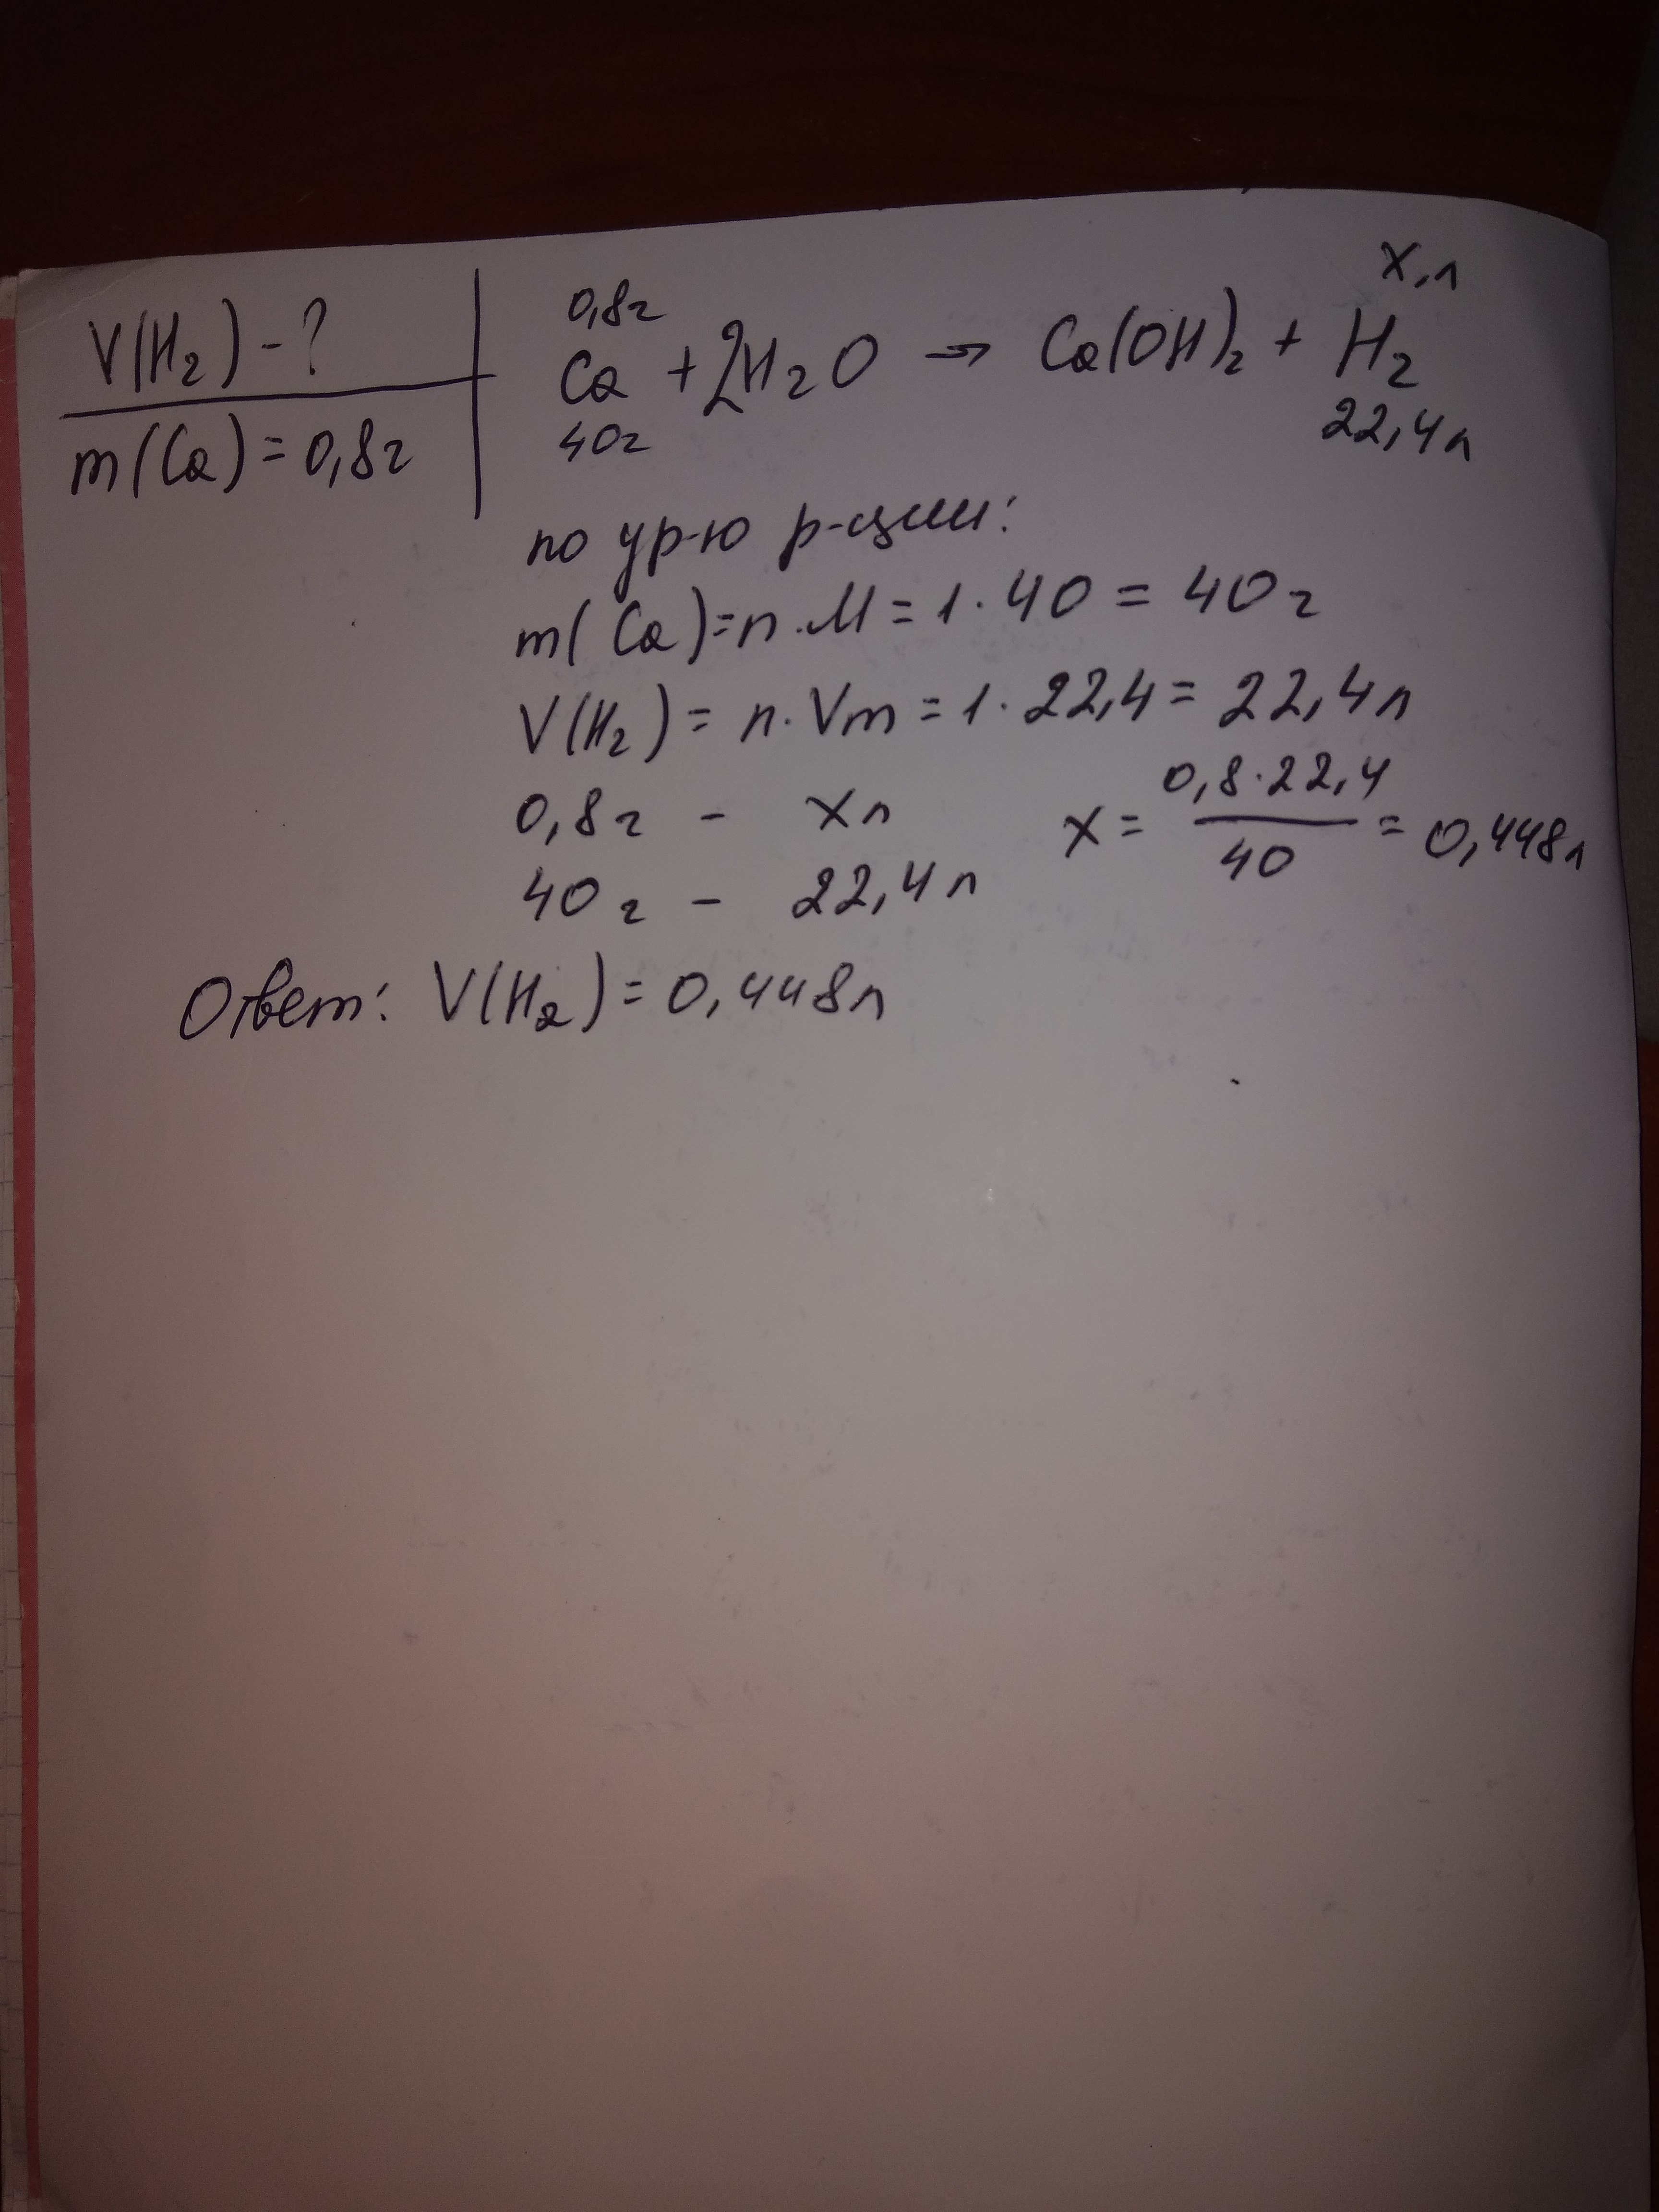 V(H₂) - ?
m(Ca) = 0,8г
0,8г
x, л
Ca + 2H₂O → Ca(OH)₂ + H₂
40г
22,4л
по ур-ю р-ции:
m(Ca) = n · M = 1 · 40 = 40 г
V(H₂) = n · Vm = 1 · 22,4 = 22,4 л
0,8г - xл
40 г - 22,4 л
x = 0,8 · 22,4 / 40 = 0,448л
Ответ: V(H₂) = 0,448л